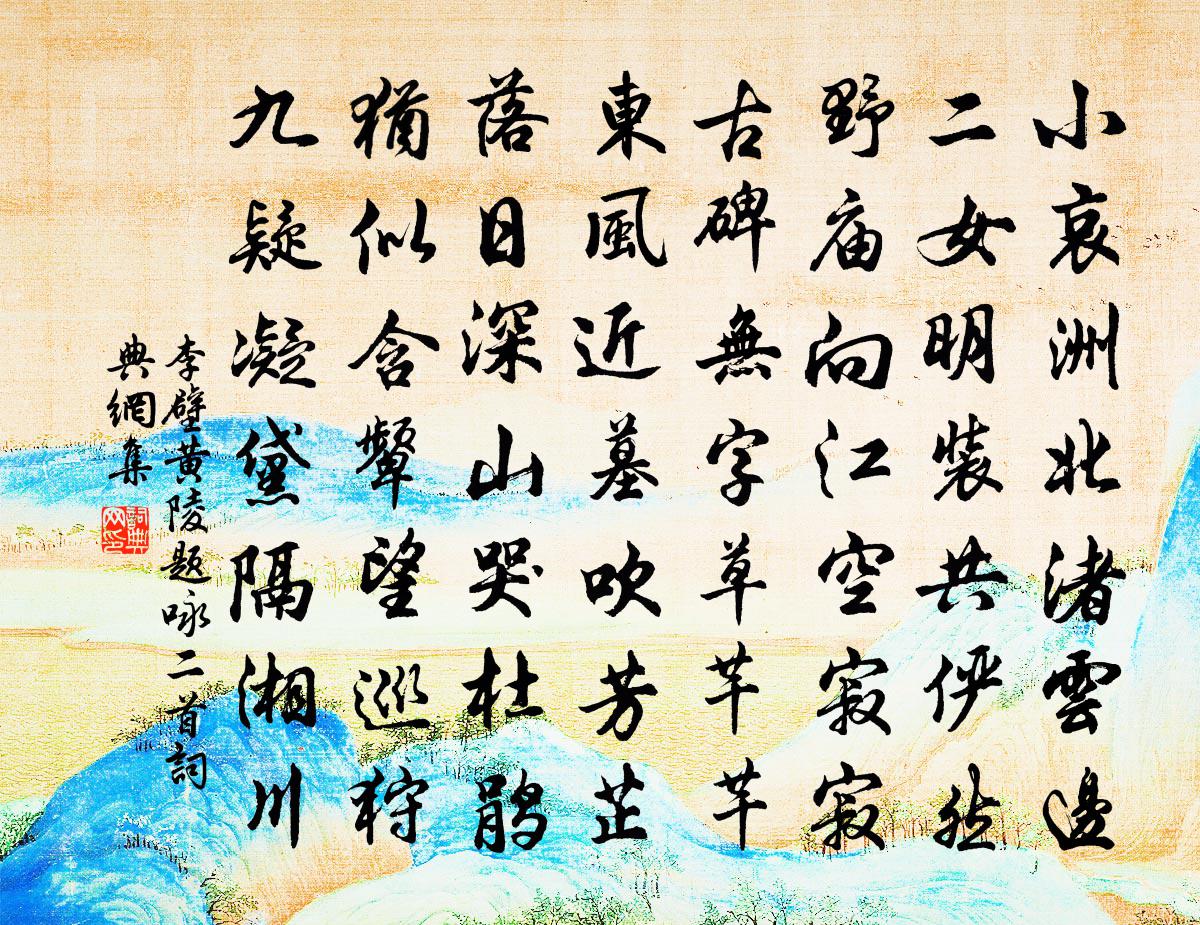 小哀洲北渚雲邊
二女明裝共俨然
野庙向江空寂寂
古碑無字草芊芊
東風近墓吹芳芷
落日深山哭杜鹃
猶似含顰望巡狩
九疑凝黛隔湘川
李壁黄陵题咏二首詞
典網集
詞典网印